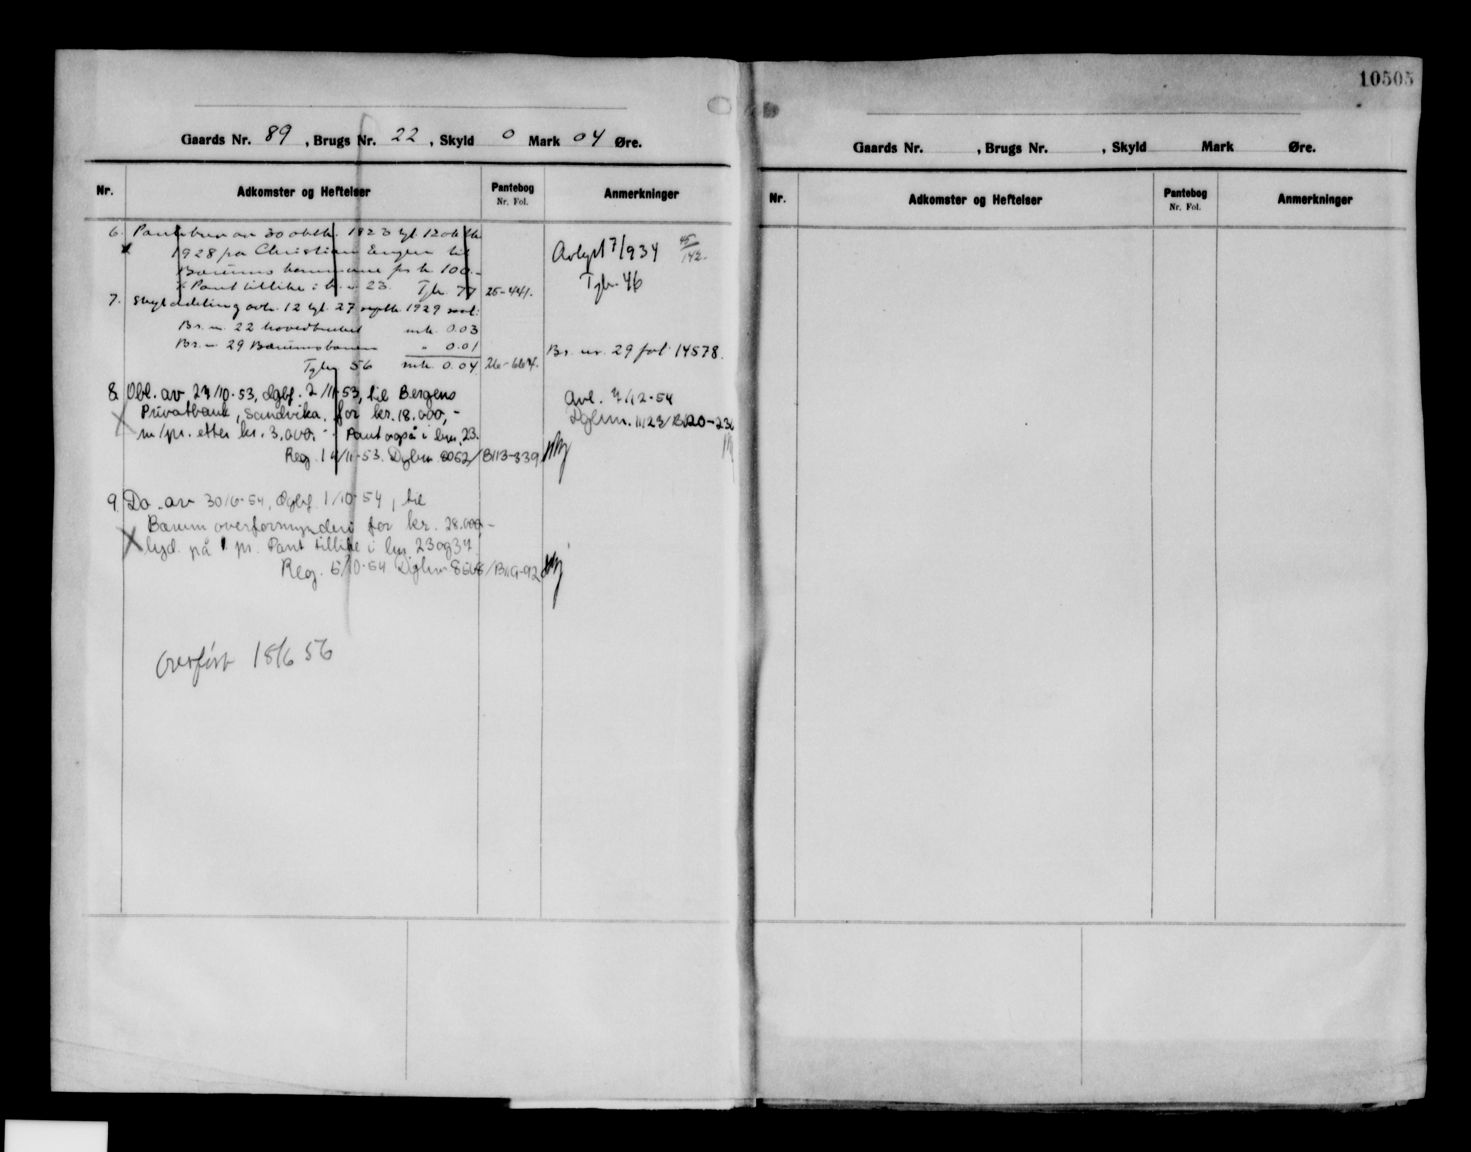 10505
Gaards Nr. 89, Brugs Nr. 22, Skyld 0 Mark 04 Øre.
Nr. Adkomster og Heftelser Pantebog Nr. Fol. Anmerkninger
6. 30 oktbr. tgl. 12 oktbr.
1928 fra Christian Engen til Avlyst 7/934 45/142.
Bærums kommune for kr. 100.- Tgbr. 46
Pant tillike i br. nr. 23. Tgbr. 77 25-441.
7. Skylddeling avh. 12 tgl. 27 septbr. 1929
Br. nr. 22 hovedbruket mrk. 0.03
Br. nr 29 Bærumsbanen " 0.01 Br. nr. 29 fol 14578.
Tgbr. 56 mrk 0.04 26-664.
8. Obl. av 23/10-53, dgbf. 2/11-53, til Bergens Avl. 7/12-54
Privatbank, Sandvika, for kr. 18.000,- Dgbnr. 11123/B120-236
m/pr. etter kr. 3.000,- Pant også i bnr. 23.
Reg. 11-53. Dgbnr. 8062/B113-339
9. Do. av 30/6-54, dgbf. 1/10-54, til
Bærum overformynderi for kr. 28.000,-
lyd. på 1 pr. Pant tillike i bnr. 23 og 37.
Reg. 5/10-54 Dgbnr 8568/B119-92
Overført 18/6 56
Gaards Nr. , Brugs Nr. , Skyld Mark Øre.
Nr. Adkomster og Heftelser Pantebog Nr. Fol. Anmerkninger